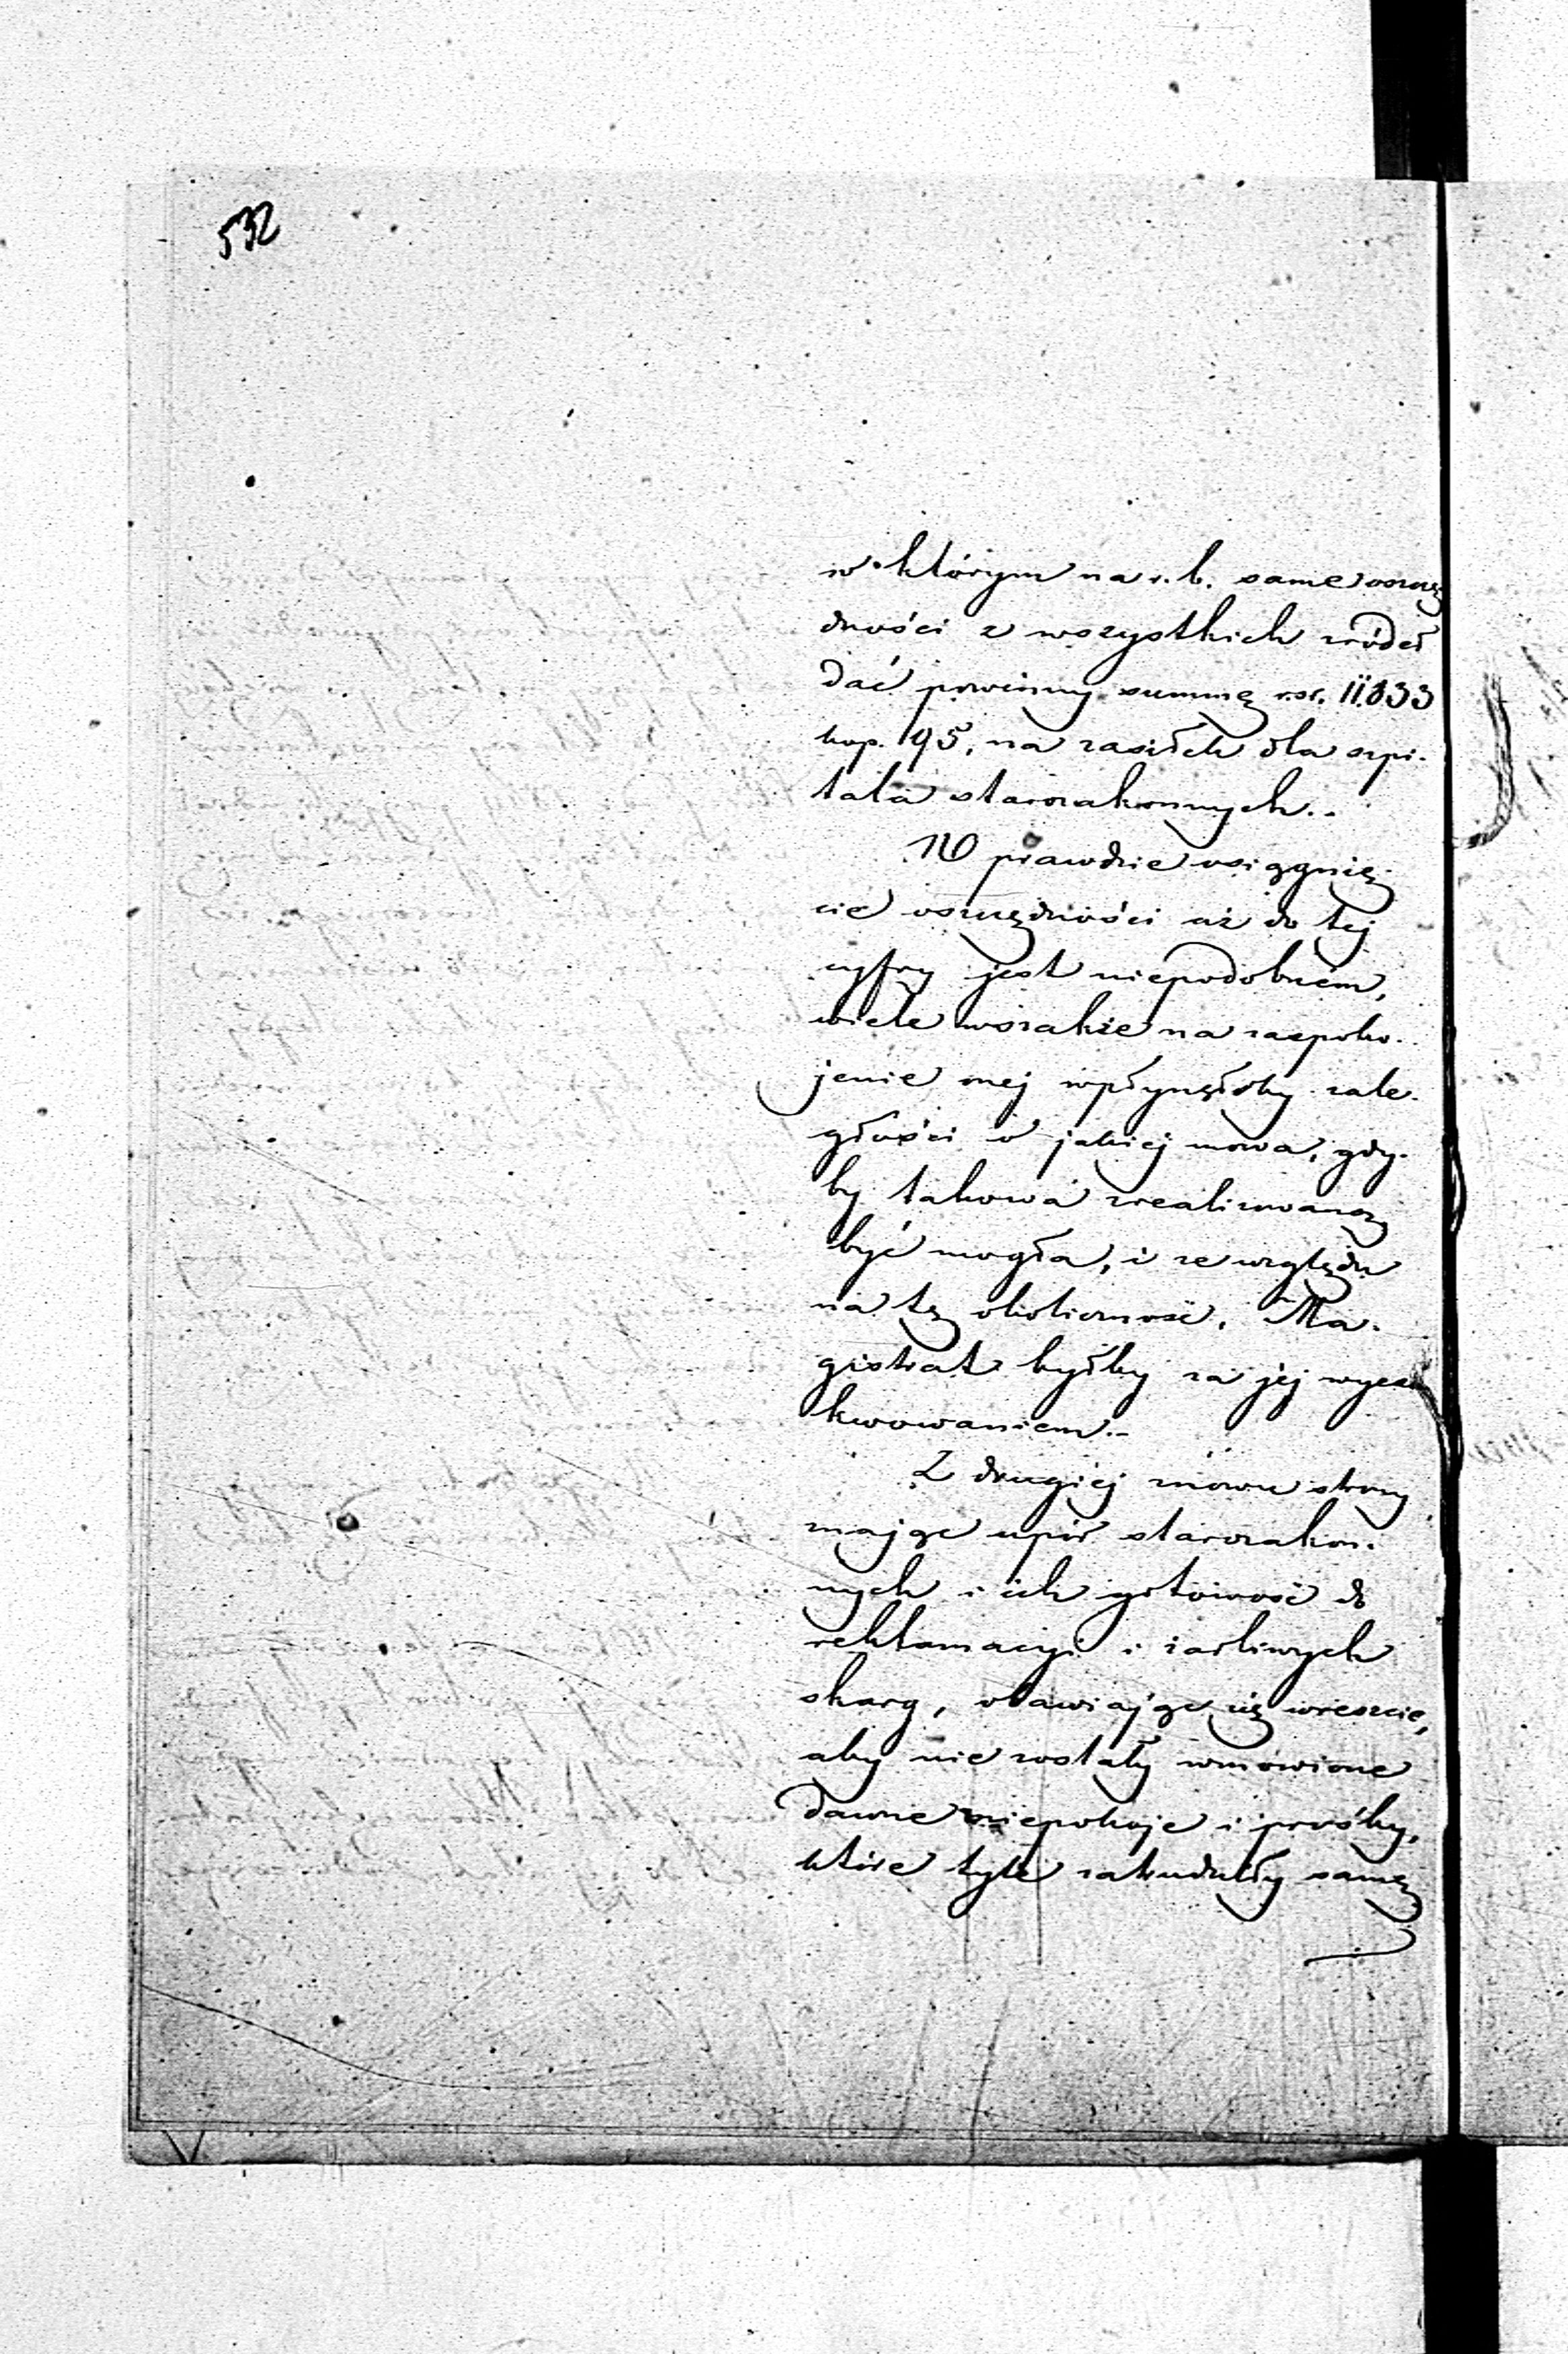 532
w którym na r. b. same oszczę
dności z wszystkich źródeł
dać powinny summę rsr. 11.833
kop. 95, na zasiłek dla szpi-
tala starozakonnych.-
W prawdzie osiągnię-
cie oszczędności aż do tej
cyfry jest niepodobném,
wiele wszakże na zaspoko-
jenie onej wpłynęłoby zale-
głości o jakiéj mowa, gdy-
by takowa zrealizowaną
być mogła, i ze względu
na tę okoliczność, Ma-
gistrat byłby za jej wyexe
kwowaniem.-
Z drugiéj znowu strony
mając upór starozakon-
nych i ich gotowość do
reklamacyi i żarliwych
skarg, obawiając się wreszcie,
aby nie zostały wznowione
dawne niepokoje i prośby,
które tyle zatrudniły samę